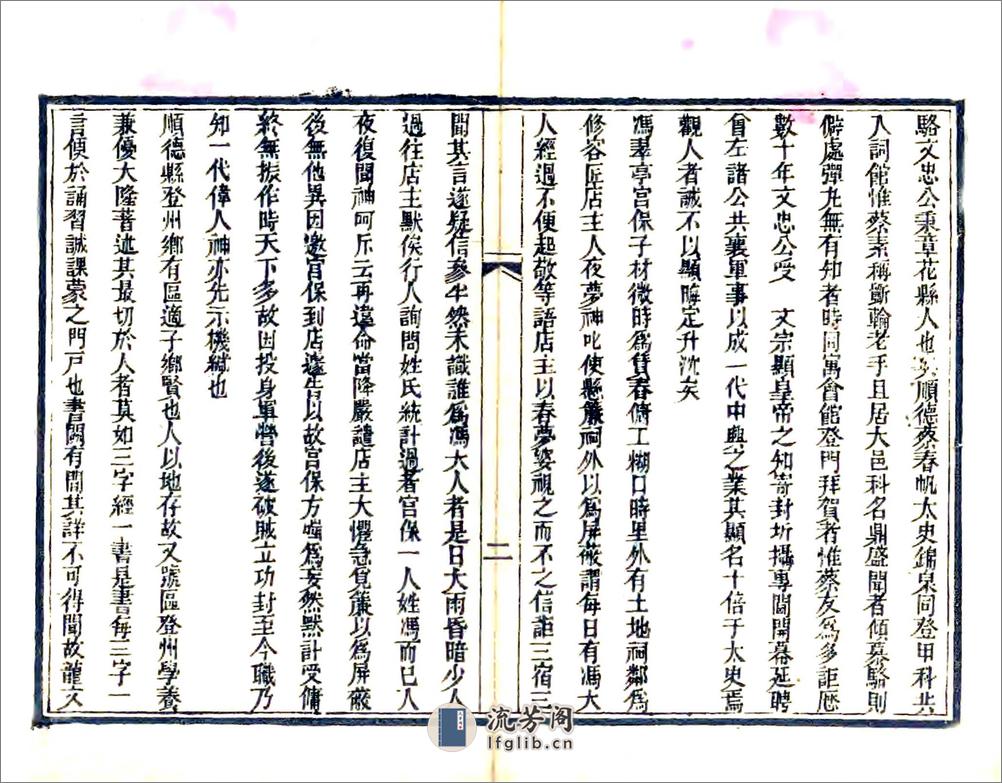 駱文忠公秉章花縣人也與順德蔡春帆太史錦泉同登甲科共
入詞館惟蔡素稱斲輪老手且居大邑科名鼎盛聞者傾慕駱則
僻處彈丸無有知者時同寓會館登門拜賀者惟蔡友爲多詎歷
數十年文忠公受 文宗顯皇帝之知寄封圻攝專閫開幕延聘
曾左諸公共襄軍事以成一代中興之業其顯名十倍于太史焉
觀人者誠不以顯晦定升沈矣
馮萃亭宮保子材微時爲賃舂傭工糊口時里外有土地祠鄰爲
修容匠店主人夜夢神叱使懸簾祠外以爲屏蔽謂每日有馮大
人經過不便起敬等語店主以春夢婆視之而不之信詎三宿三
聞其言遂疑信參半然未識誰爲馮大人者是日大雨昏暗少人
過往店主默俟行人詢問姓氏統計過者宮保一人姓馮而已入
夜復聞神呵斥云再違命當降嚴譴店主大懼急覓簾以爲屏蔽
後無他異因邀宮保到店遽告以故宮保方嗤爲妄然默計受傭
終無振作時天下多故因投身軍營後遂破賊立功封至今職乃
知一代偉人神亦先示機緘也
順德縣登州鄉有區適子鄉賢也人以地存故又號區登州學養
兼優大隆著述其最切於人者莫如三字經一書是書每三字一
言便於誦習誠課蒙之門戸也書闕有間其詳不可得聞故龍文
二
流芳阁
lfglib.cn